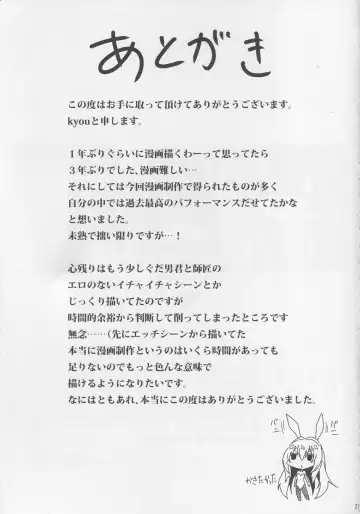 あとがき
この度はお手に取って頂けてありがとうございます。
kyouと申します。
１年ぶりぐらいに漫画描くわーって思ってたら
３年ぶりでした、漫画難しい…
それにしては今回漫画制作で得られたものが多く
自分の中では過去最高のパフォーマンスだせてたかな
と想いました。
未熟で拙い限りですが…！
心残りはもう少しぐだ男君と師匠の
エロのないイチャイチャシーンとか
じっくり描いてたのですが
時間的余裕から判断して削ってしまったところです
無念……（先にエッチシーンから描いてた
本当に漫画制作というのはいくら時間があっても
足りないのでもっと色んな意味で
描けるようになりたいです。
なにはともあれ、本当にこの度はありがとうございました。
かきたかった